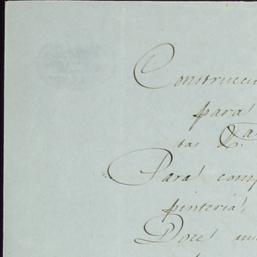 Construcci
para
tas &.
Para comp
pinteria,
Doce